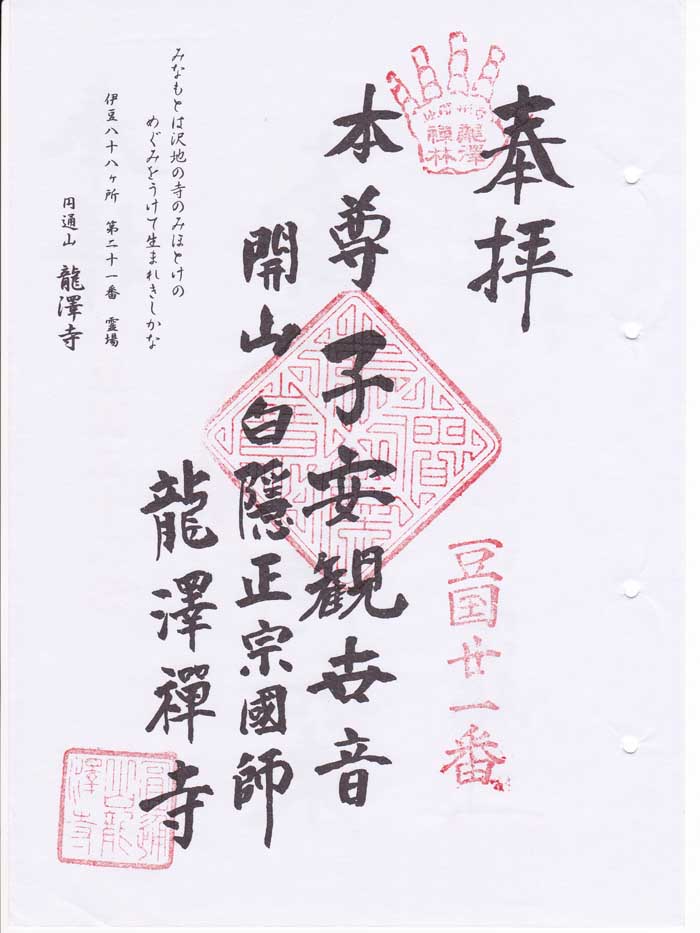 奉拝
龍澤
禪林
豆国廿一番
本尊子安観世音
開山白隱正宗國師
龍澤禪寺
圓通
山龍
澤寺
みなもとは沢地の寺のみほとけの
めぐみをうけて生まれきしかな
伊豆八十八ヶ所　第二十一番　霊場
円通山　龍澤寺